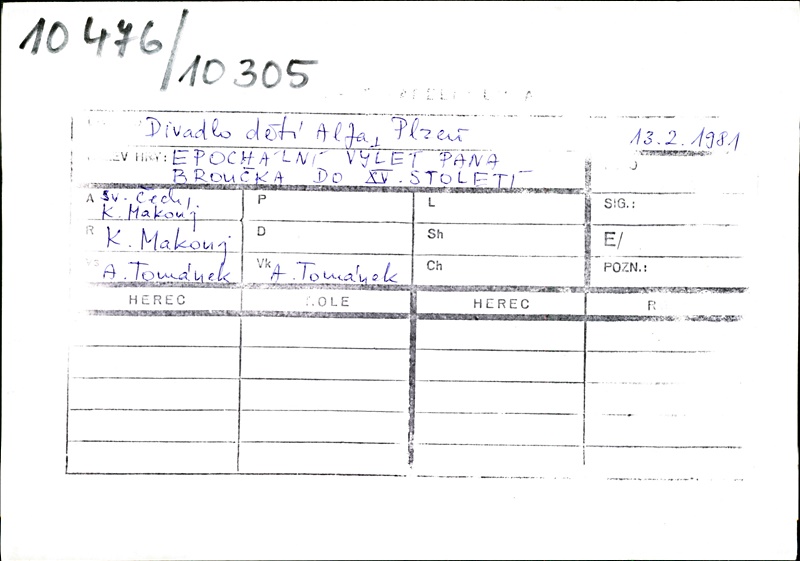 10 476/
10 305
Divadlo dětí Alfa, Plzeň
13.2.1981
EPOCHÁLNÍ VÝLET PANA
BROUČKA DO XV. STOLETÍ
A Sv. Čech,
K. Makonj
P
L
SIG.:
R K. Makonj
D
Sh
E/
A. Tománek
Vk A. Tománek
Ch
POZN.:
HEREC
OLE
HEREC
R